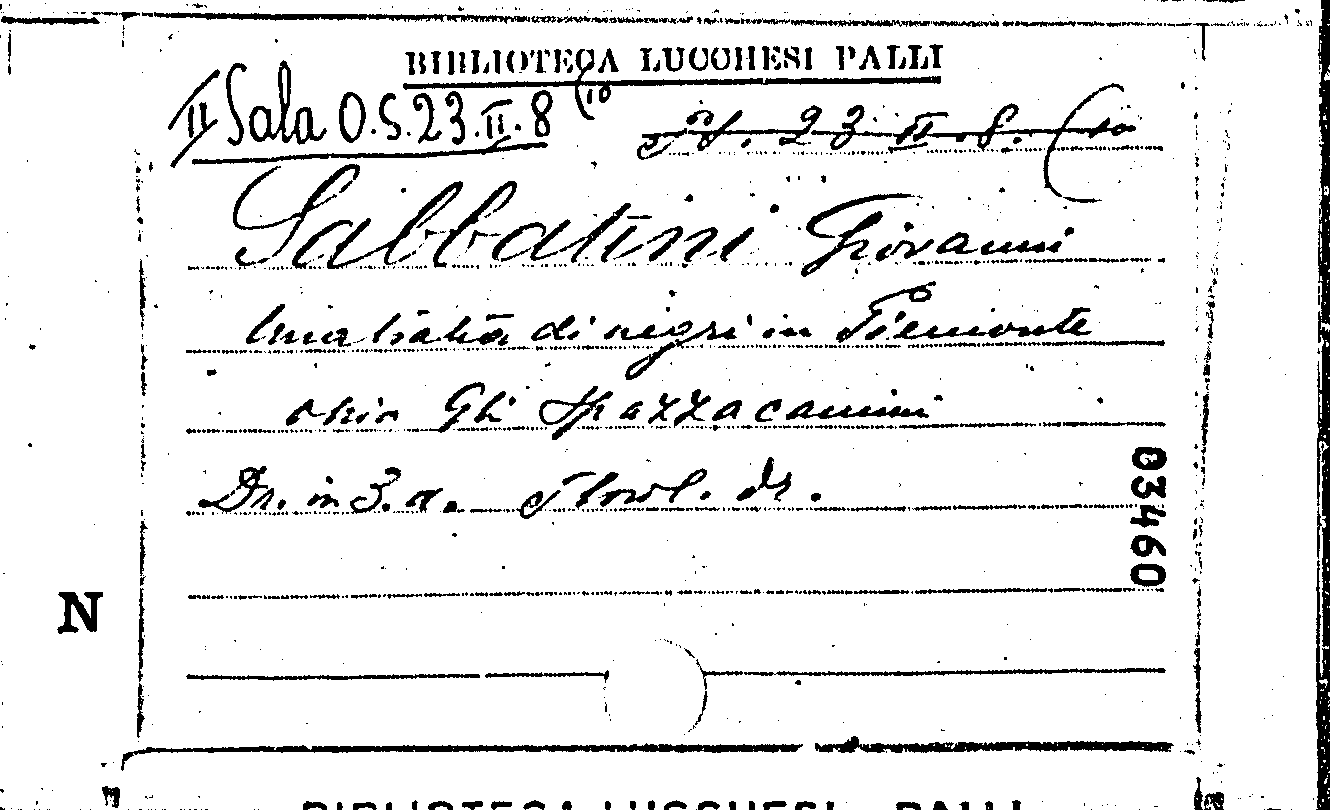 BIBLIOTECA LUCCHESI PALLI
II Sala O.S.23.II.8 (10
23 II 8. (10
Sabbatini Giovanni
Una tratta di negri in Piemonte
ossia Gli Spazzacamini
Dr. in 3. a.
03460
N
BIBLIOTECA LUCCHESI PALLI